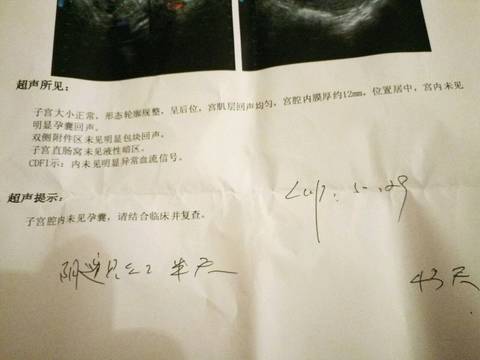 超声所见：
子宫大小正常，形态轮廓规整，呈后位，宫肌层回声均匀，宫腔内膜厚约12mm，位置居中，宫内未见
明显孕囊回声。
双侧附件区未见明显包块回声。
子宫直肠窝未见液性暗区。
CDFI示：内未见明显异常血流信号。
超声提示：
子宫腔内未见孕囊，请结合临床并复查。
半天
43天